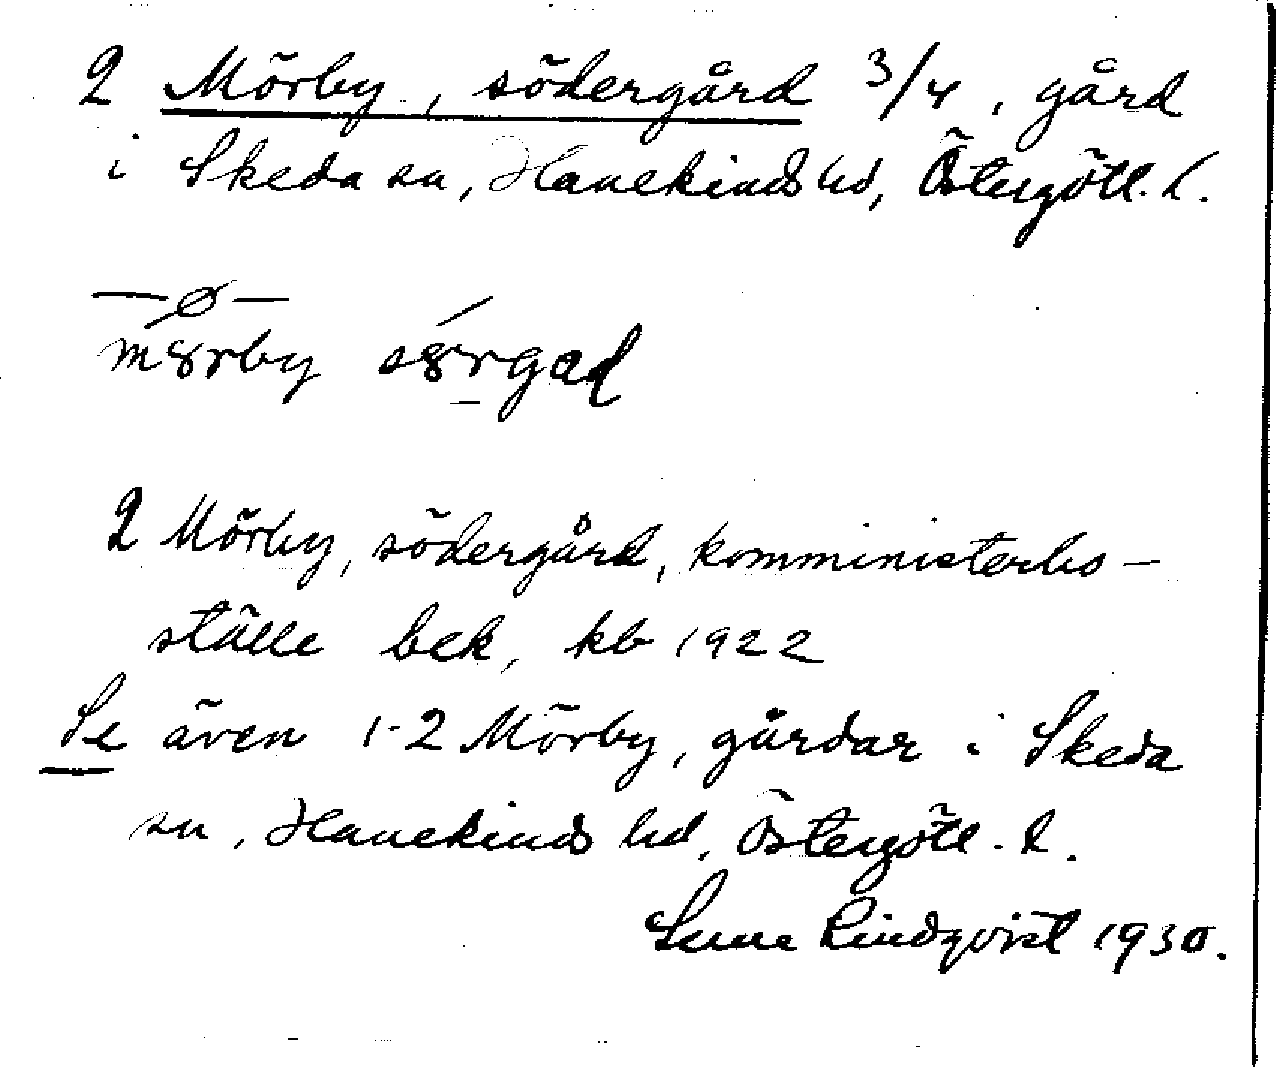 2 Mörby, södergård 3/4, gård
i Skeda sn, Hanekinds hd, Östergötl. l.
—ø—
mörby sörgad
2 Mörby, södergård, komministerbo-
ställe bek, kb 1922
Se även 1-2 Mörby, gårdar i Skeda
sn, Hanekinds hd, Östergötl. l.
Sune Lindqvist 1930.